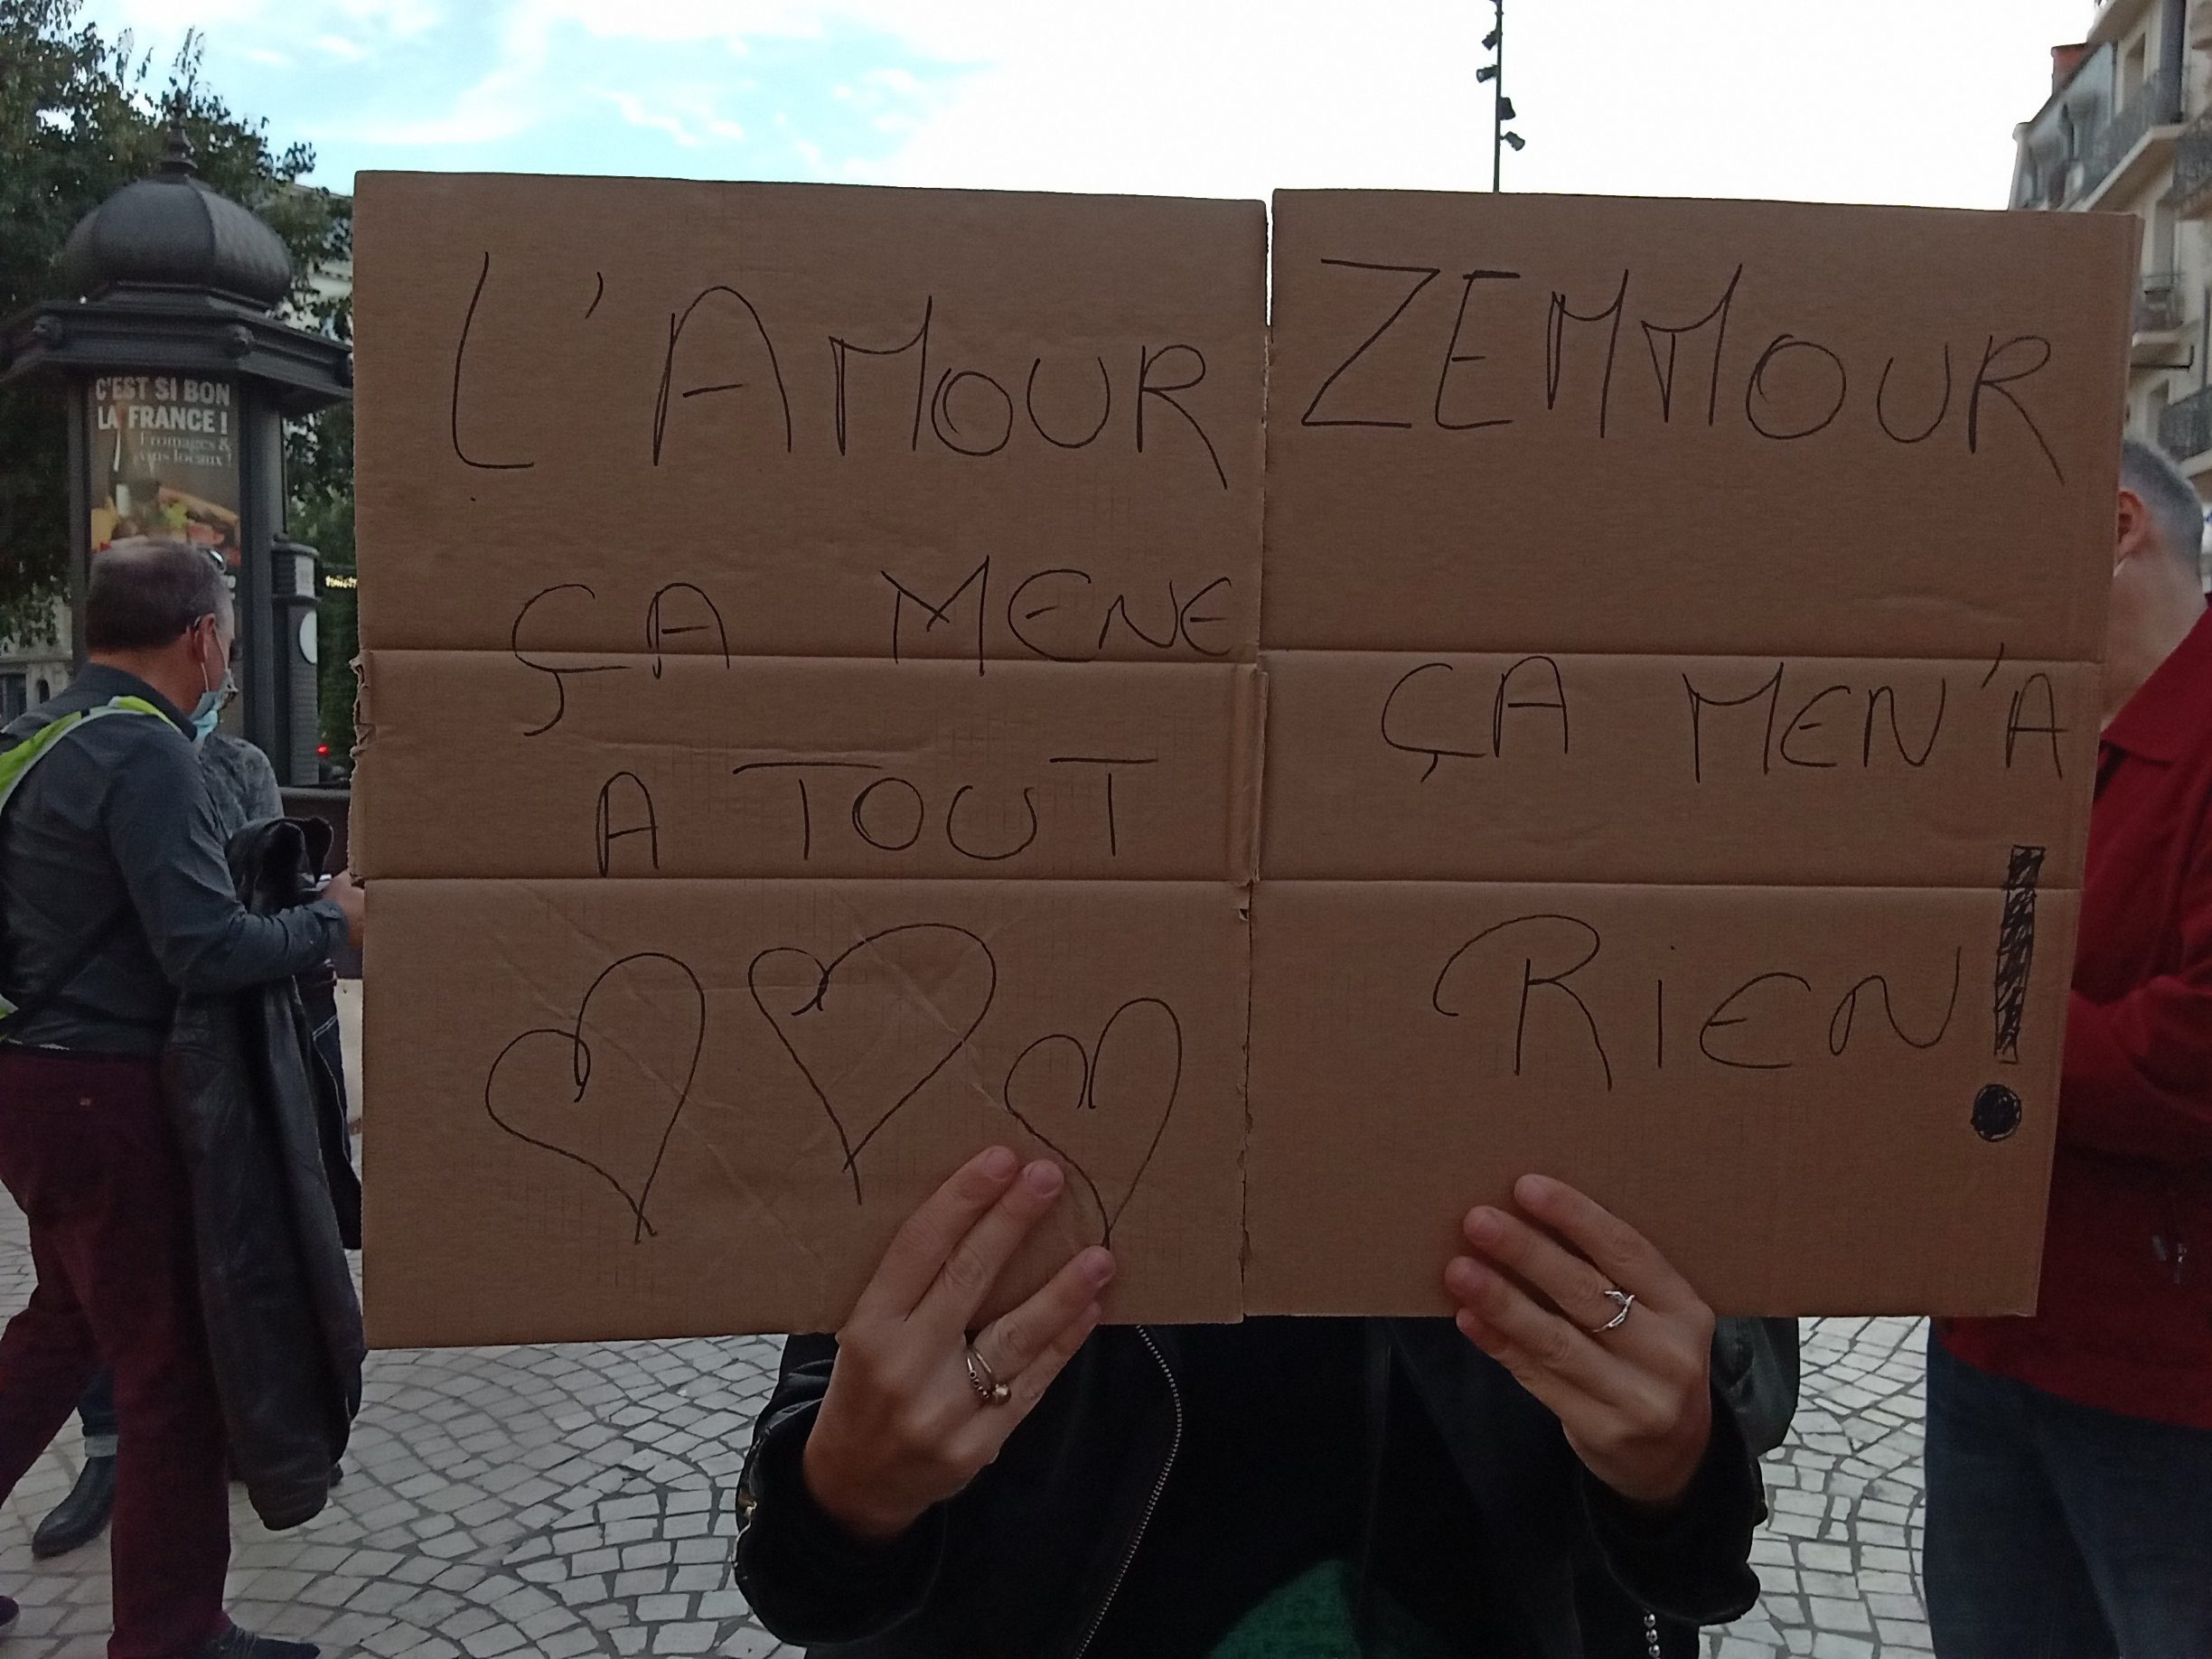 C'EST SI BON
LA FRANCE !
Fromages &
vins locaux !
L'AMOUR
ÇA MENE
A TOUT
ZEMMOUR
ÇA MEN'A
RIEN !